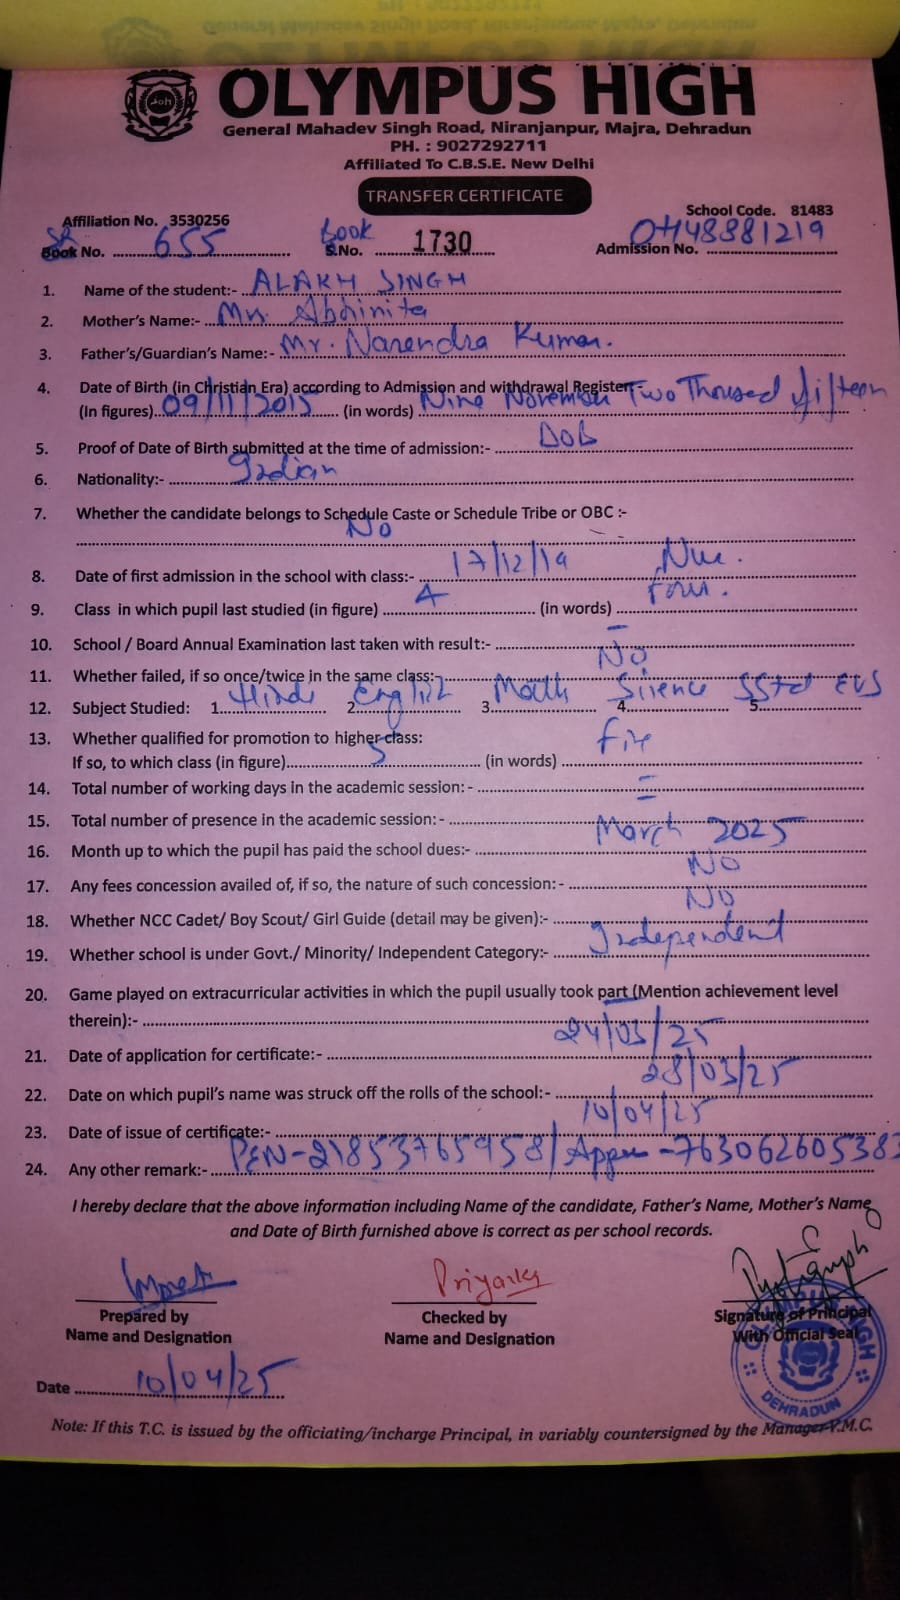 OLYMPUS HIGH
General Mahadev Singh Road, Niranjanpur, Majra, Dehradun
PH. : 9027292711
Affiliated To C.B.S.E. New Delhi
TRANSFER CERTIFICATE
Affiliation No. 3530256 School Code. 81483
SR Book No. 655 Book S.No. 1730 Admission No. OH48881219
1. Name of the student:- ALAKH SINGH
2. Mother's Name:- Mrs. Abhinita
3. Father's/Guardian's Name:- Mr. Narendra Kumar.
4. Date of Birth (in Christian Era) according to Admission and withdrawal Register:-
(In figures) 09/11/2015 (in words) Nine November Two Thoused fifteen
5. Proof of Date of Birth submitted at the time of admission:- DOB
6. Nationality:- Indian
7. Whether the candidate belongs to Schedule Caste or Schedule Tribe or OBC :-
No
8. Date of first admission in the school with class:- 17/12/19
9. Class in which pupil last studied (in figure) 4 (in words) four.
10. School / Board Annual Examination last taken with result:- –
11. Whether failed, if so once/twice in the same class:- No
12. Subject Studied: 1. Hindi 2. English 3. Math 4. Sirence 5. SStd EVS
13. Whether qualified for promotion to higher class:
If so, to which class (in figure) 5 (in words) five
14. Total number of working days in the academic session: -
15. Total number of presence in the academic session: -
16. Month up to which the pupil has paid the school dues:- March 2025
17. Any fees concession availed of, if so, the nature of such concession: - NO
18. Whether NCC Cadet/ Boy Scout/ Girl Guide (detail may be given):- NO
19. Whether school is under Govt./ Minority/ Independent Category:- Independent
20. Game played on extracurricular activities in which the pupil usually took part (Mention achievement level
therein):-
21. Date of application for certificate:- 24/03/25
22. Date on which pupil's name was struck off the rolls of the school:- 28/03/25
23. Date of issue of certificate:- 10/04/25
24. Any other remark:- PEN-21853765958/ -763062605383
I hereby declare that the above information including Name of the candidate, Father's Name, Mother's Name
and Date of Birth furnished above is correct as per school records.
Priyanka
Prepared by Checked by Signature of Principal
Name and Designation Name and Designation With Official Seal
OLYMPUS HIGH
DEHRADUN
Date 10/04/25
Note: If this T.C. is issued by the officiating/incharge Principal, in variably countersigned by the Manager V.M.C.